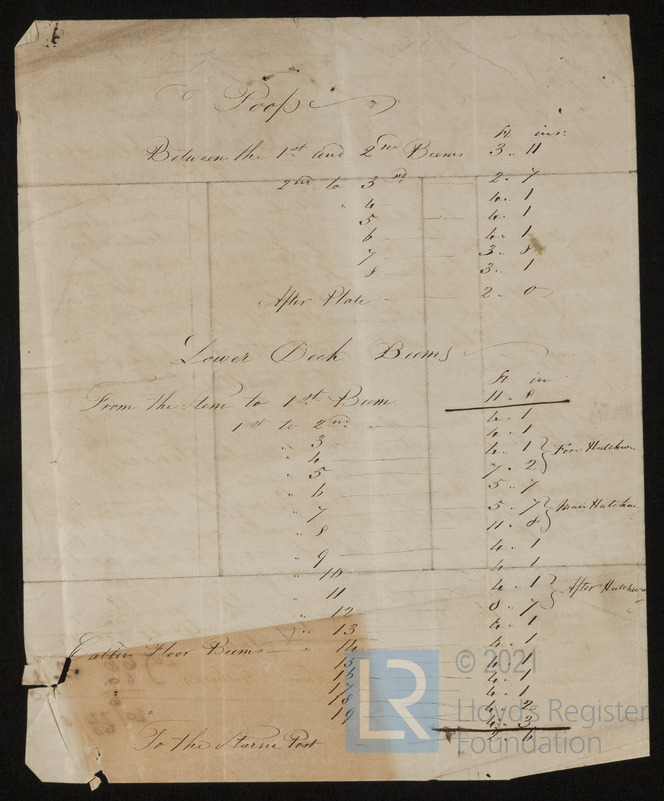 To Poop
Ft ins:
Between the 1st and 2nd Beems 3 .. 11
2nd to 3rd 2 .. 7
" 4 4 .. 1
5 4 .. 1
6 4 .. 1
7 3 .. 8
8 3 .. 1
After Plate 2 .. 0
Lower Deck Beems
Ft in
From the stem to 1st Beem 11 .. 8
1st to 2nd " 4 .. 1
" 3 4 .. 1
" 4 4 .. 1 } Fore Hatchw
" 5 7 .. 2
" 6 5 .. 7
" 7 5 .. 7 } Main Hatchw
" 8 11 .. 8
" 9 4 .. 1
" 10 4 .. 1
" 11 4 .. 1 } After Hatchw
" 12 .. 7
" 13 4 .. 1
Cabbin Floor Beems " 14 4 .. 1
15 4 .. 1
16 4 .. 1
17 4 .. 1
18 4 .. 2
19 4 .. 3
To the Starne Post 2 .. 6
LR
© 2021
Lloyd's Register
Foundation